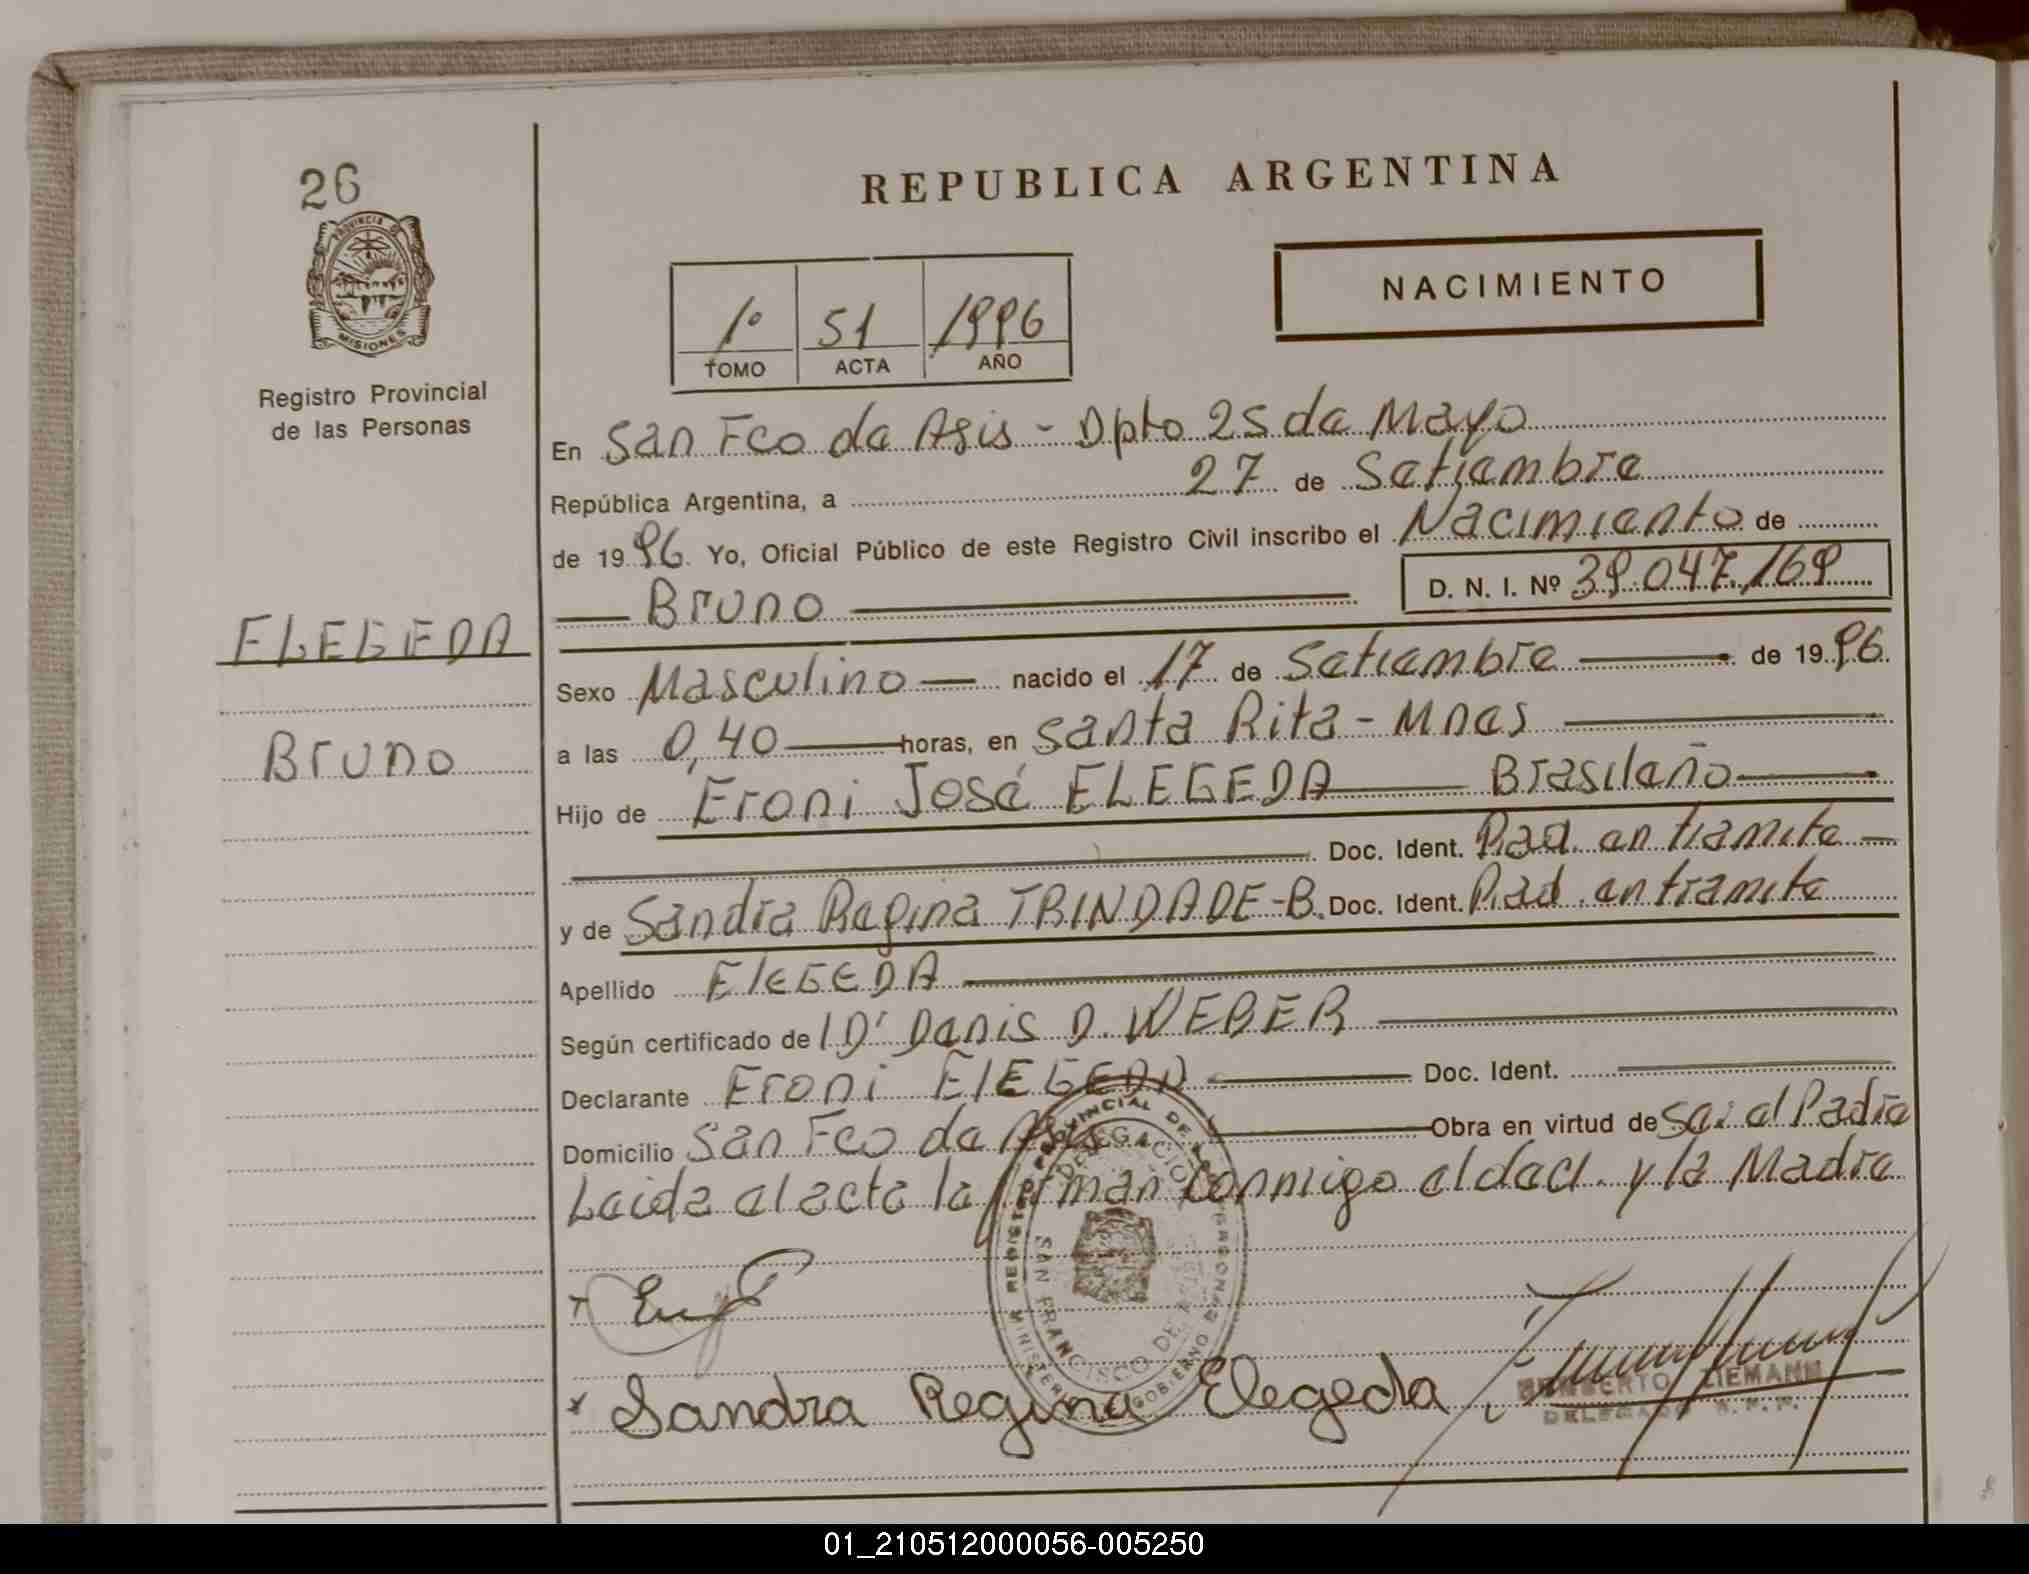 26
PROVINCIA DE
MISIONES
Registro Provincial
de las Personas
ELEGEDA
Bruno
REPUBLICA ARGENTINA
NACIMIENTO
1º 51 1996
TOMO ACTA AÑO
En San Fco de Asis - Dpto 25 de Mayo
República Argentina, a 27 de Setiembre
de 1996. Yo, Oficial Público de este Registro Civil inscribo el Nacimiento de
Bruno D. N. I. Nº 39.047.169
Sexo Masculino nacido el 17 de Setiembre de 1996.
a las 0,40 horas, en Santa Rita - Mnes
Hijo de Eroni José ELEGEDA Brasileño
Doc. Ident. Rad. en tramite
y de Sandra Regina TRINDADE-B. Doc. Ident. Rad. en tramite
Apellido ElEGEDA
Según certificado de Dr Denis D. WEBER
Declarante Eroni ElEGEDA Doc. Ident.
Domicilio San Fco de Asis Obra en virtud de Ser el Padre
Leida el acta la firman conmigo el decl. y la Madre
REGISTRO PROVINCIAL DE LAS PERSONAS
DELEGACION
SAN FRANCISCO DE ASIS
MINISTERIO GOBIERNO
Sandra Regina Elegeda
HUMBERTO ZIEMANN
DELEGADO R.P.P.
01_210512000056-005250